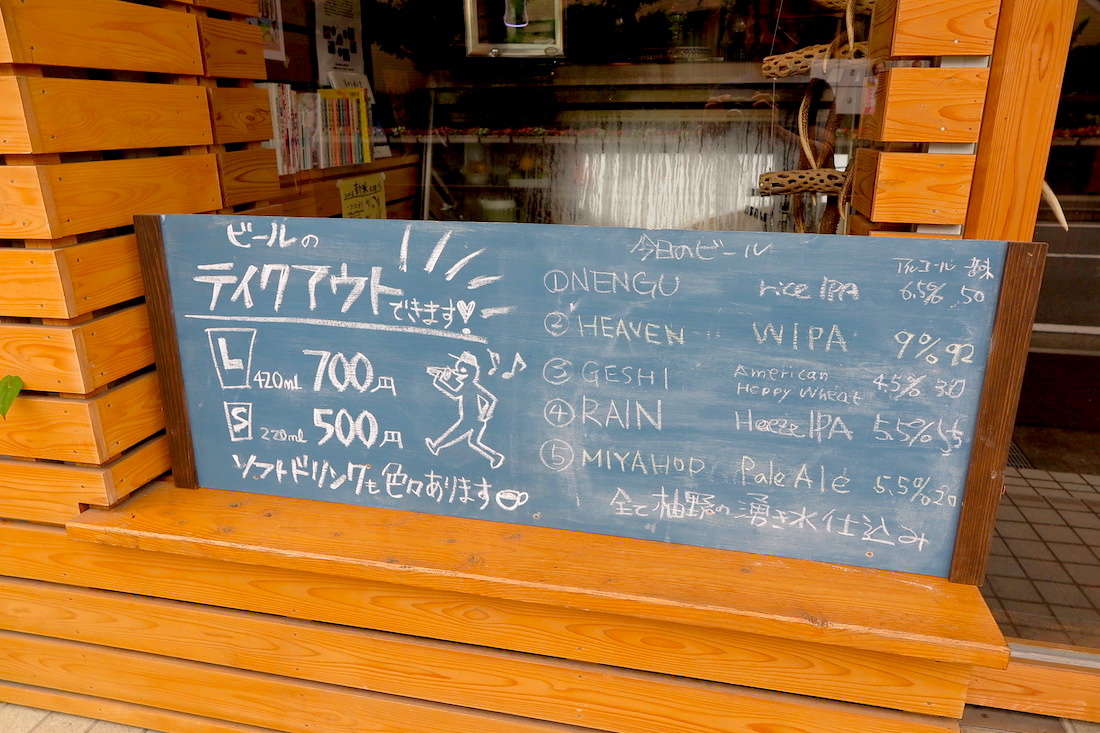 ビールの
テイクアウト
できます
L 420ml 700円
S 220ml 500円
ソフトドリンクも色々あります
今日のビール
アルコール 苦味
①NENGU rice IPA 6.5% 50
② HEAVEN WIPA 9% 92
③ GESHI American Hoppy Wheat 4.5% 30
④ RAIN Haeze IPA 5.5% 55
⑤ MIYAHOP Pale Ale 5.5% 20
全て柚野の湧き水仕込み